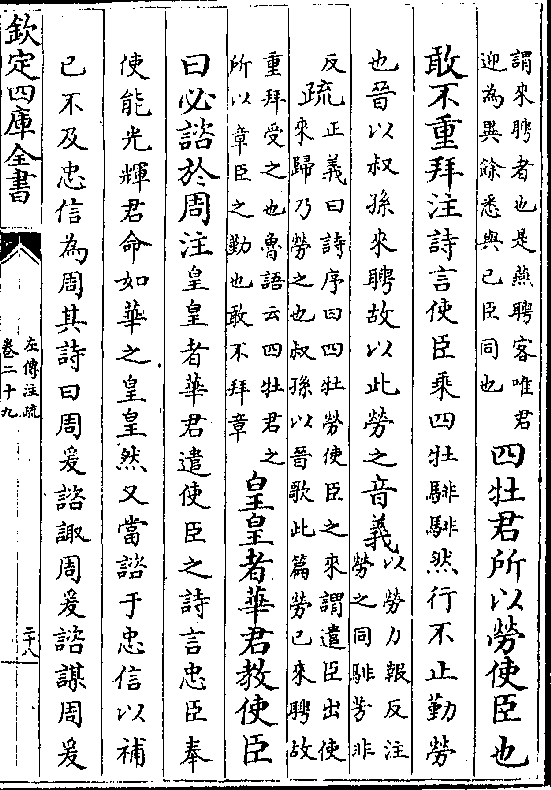 謂來聘者也是燕聘客唯君
迎為異餘悉與已臣同也
四牡君所以勞使臣也
敢不重拜注詩言使臣乘四牡騑騑然行不止勤勞
也晉以叔孫來聘故以此勞之音義
以勞力報反注
勞之同騑芳非
反
疏
正義曰詩序曰四牡勞使臣之來謂遣臣出使
來歸乃勞之也叔孫以晉歌此篇勞已來聘故
重拜受之也魯語云四牡君之
所以章臣之勤也敢不拜章
皇皇者華君教使臣
曰必諮於周注皇皇者華君遣使臣之詩言忠臣奉
使能光輝君命如華之皇皇然又當諮于忠信以補
已不及忠信為周其詩曰周爰諮諏周爰諮謀周爰
欽定四庫全書
左傳注疏
卷二十九
二十八